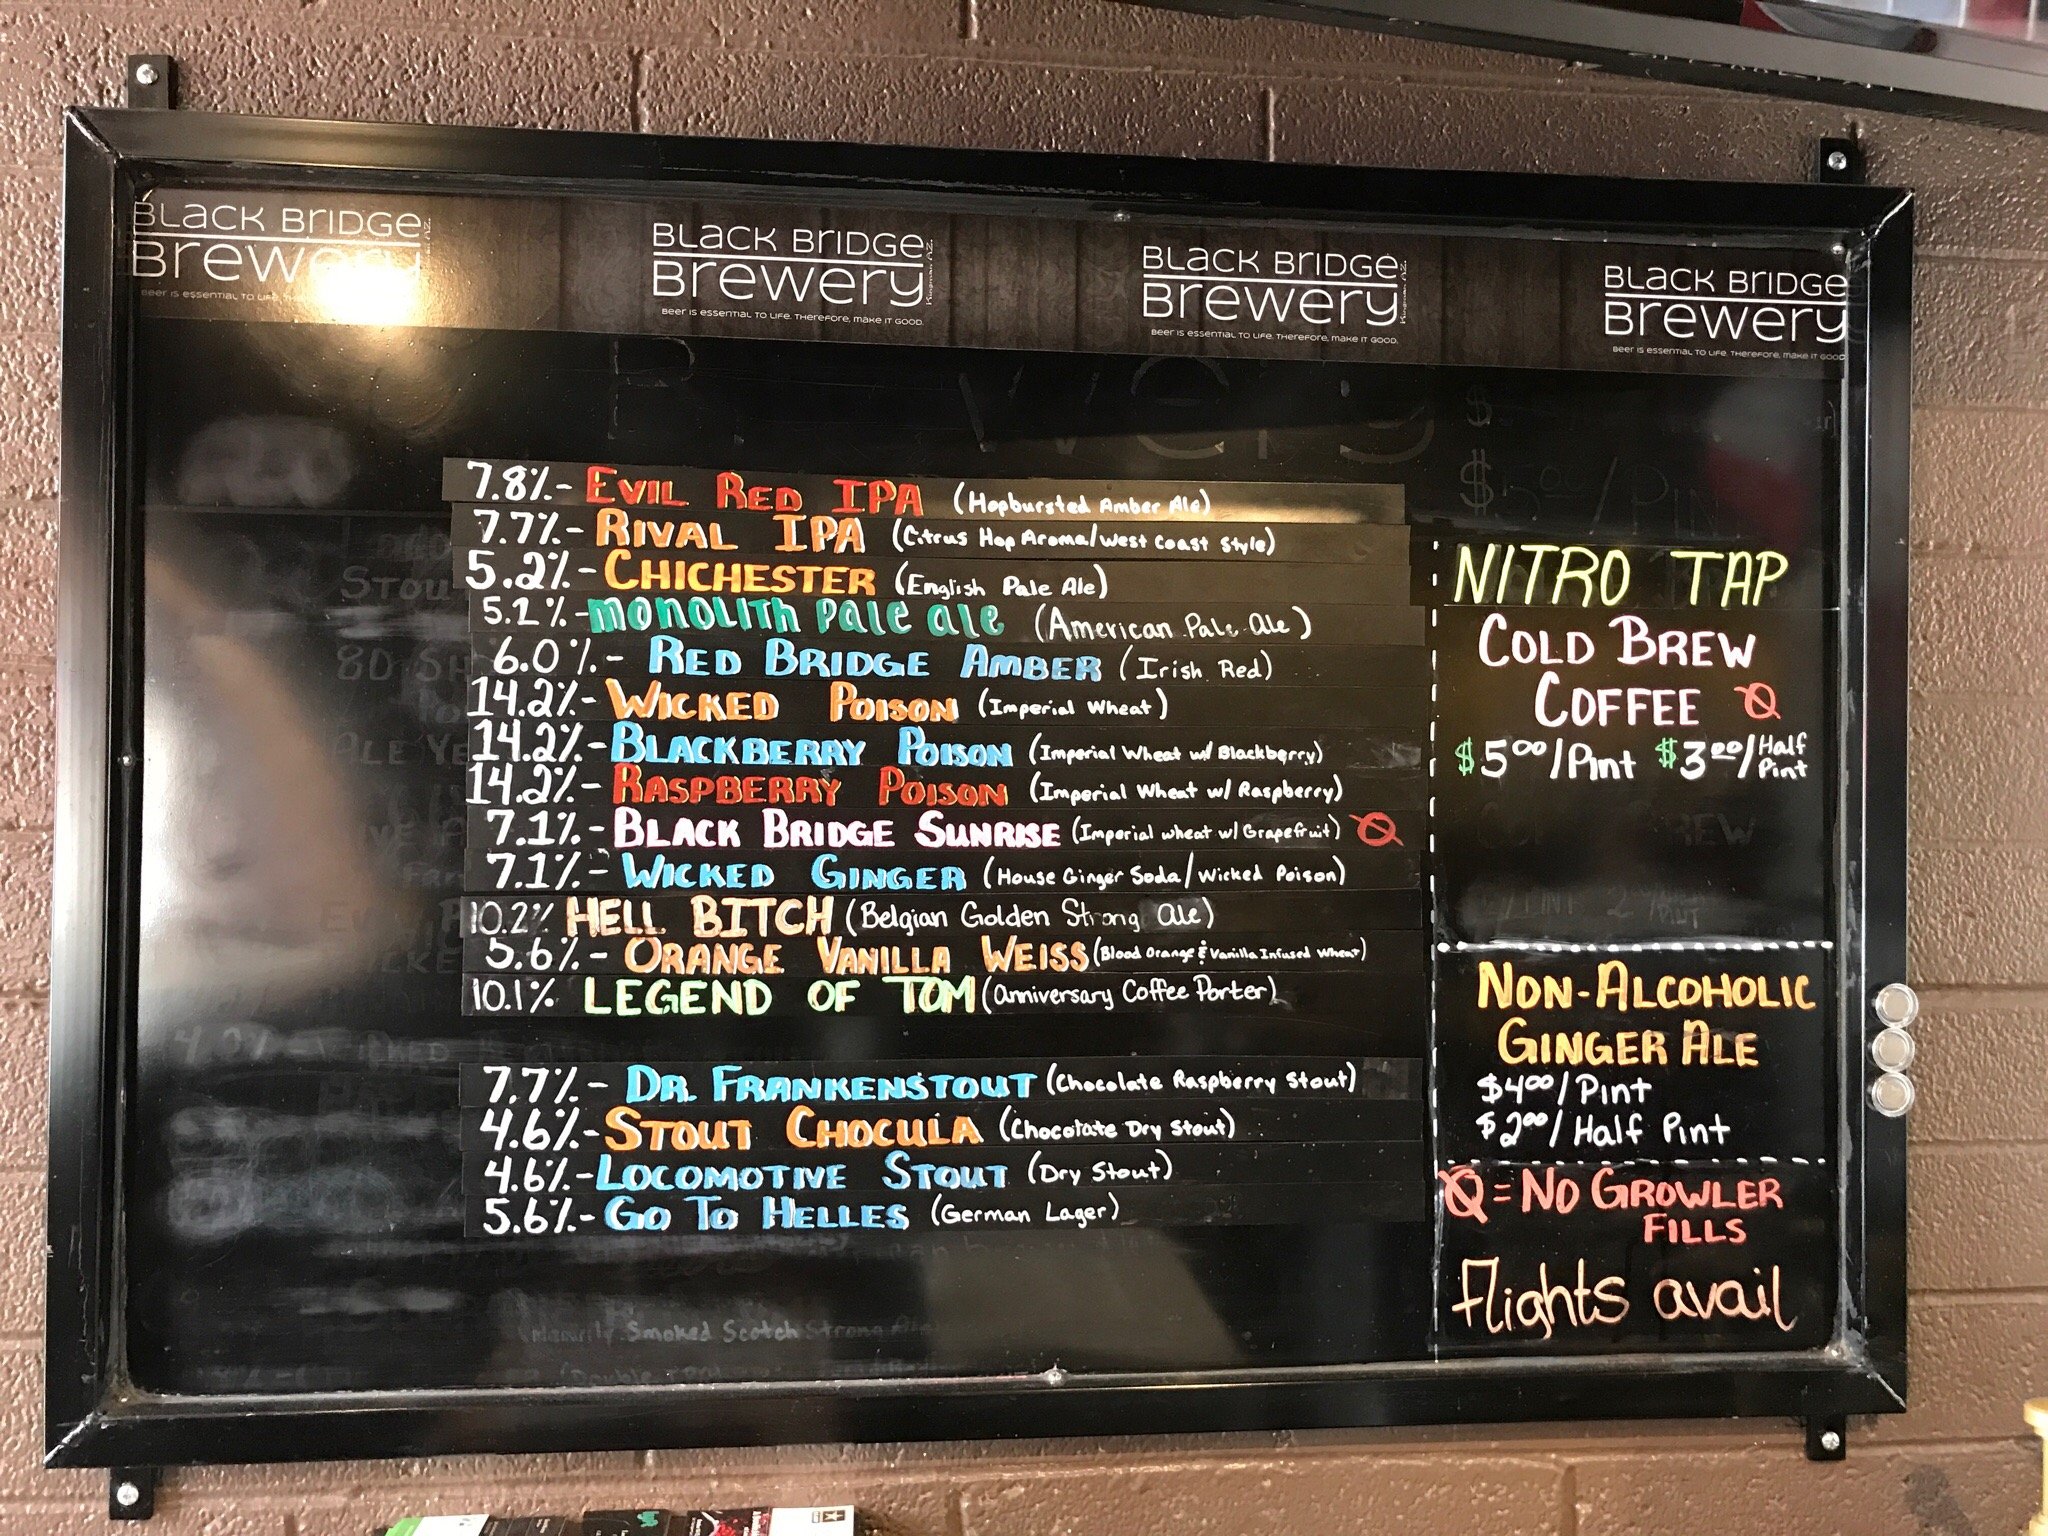 BLACK BRIDGE
Brewery
BEER IS ESSENTIAL TO LIFE.
BLACK BRIDGE
Brewery
Kingman AZ.
BEER IS ESSENTIAL TO LIFE. THEREFORE, MAKE IT GOOD.
BLACK BRIDGE
Brewery
Kingman AZ.
BEER IS ESSENTIAL TO LIFE. THEREFORE, MAKE IT GOOD.
BLACK BRIDGE
Brewery
BEER IS ESSENTIAL TO LIFE. THEREFORE, MAKE IT GOOD
7.8%- EVIL RED IPA (Hopbursted Amber Ale)
7.7%- RIVAL IPA (Citrus Hop Aroma/West Coast Style)
5.2%- CHICHESTER (English Pale Ale)
5.1%- MONOLITH PALE ALE (American Pale Ale)
6.0%- RED BRIDGE AMBER (Irish Red)
14.2%- WICKED POISON (Imperial Wheat)
14.2%- BLACKBERRY POISON (Imperial Wheat w/ Blackberry)
14.2%- RASPBERRY POISON (Imperial Wheat w/ Raspberry)
7.1%- BLACK BRIDGE SUNRISE (Imperial wheat w/ Grapefruit)
7.1%- WICKED GINGER (House Ginger Soda/Wicked Poison)
10.2% HELL BITCH (Belgian Golden Strong Ale)
5.6%- ORANGE VANILLA WEISS (Blood Orange & Vanilla Infused Wheat)
10.1% LEGEND OF TOM (Anniversary Coffee Porter)
7.7%- DR. FRANKENSTOUT (Chocolate Raspberry Stout)
4.6%- STOUT CHOCULA (Chocolate Dry Stout)
4.6%- LOCOMOTIVE STOUT (Dry Stout)
5.6%- GO TO HELLES (German Lager)
NITRO TAP
COLD BREW
COFFEE
$5.00/Pint $3.00/Half Pint
NON-ALCOHOLIC
GINGER ALE
$4.00/Pint
$2.00/Half Pint
= NO GROWLER
FILLS
flights avail